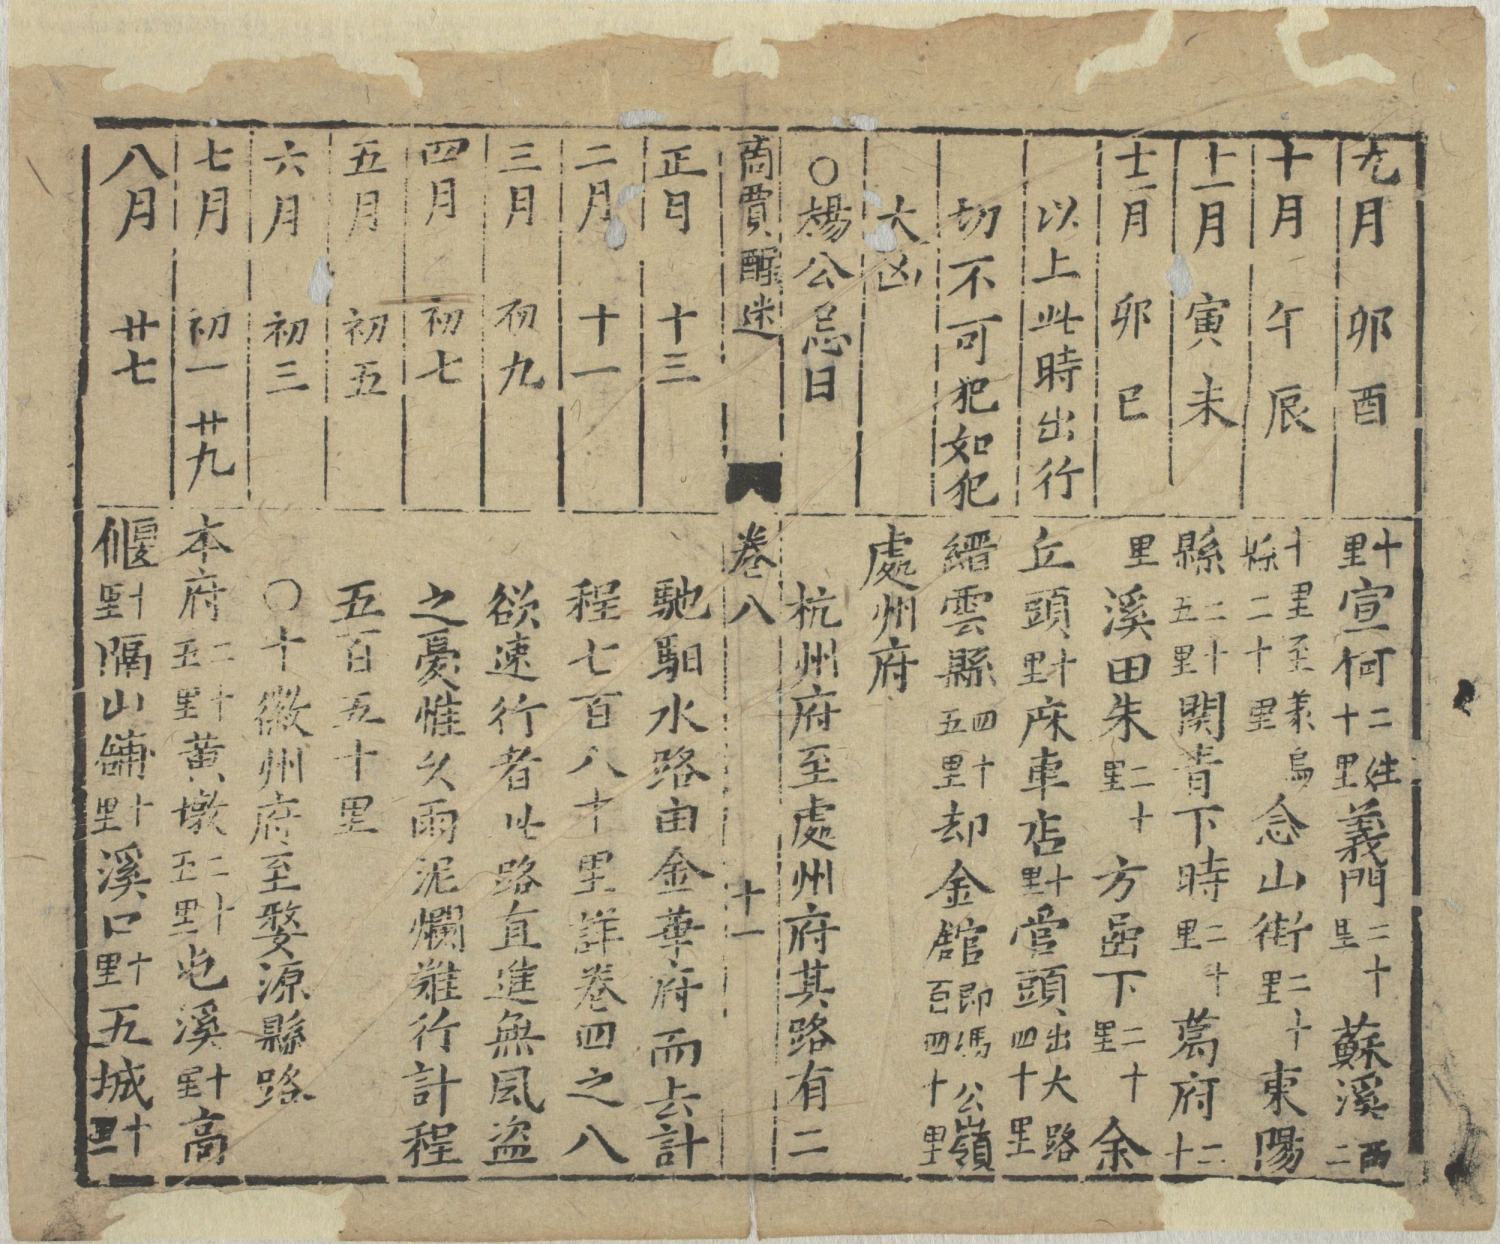 九月 卯酉
十月 午辰
十一月 寅未
十二月 卯巳
以上此時出行
切不可犯如犯
大凶
○楊公忌日
十里宣何二姓十里義門二十里蘇溪西二
十里至義烏縣二十里念山街二十里東陽
縣二十五里関青下時二十里葛府二十
里溪田朱二十里方嵒下二十里余
丘頭十里庥車店十里官頭出大路四十里
縉雲縣四十五里却金舘即馮公嶺百四十里
處州府
杭州府至處州府其路有二
商賈醒迷 卷八 十一
正月 十三
二月 十一
三月 初九
四月 初七
五月 初五
六月 初三
七月 初一 廿九
八月 廿七
馳馹水路由金華府而去計
程七百八十里詳卷四之八
欲速行者此路直進無風盗
之憂惟久雨泥爛難行計程
五百五十里
○十徽州府至婺源縣路
本府二十五里黄墩二十五里屯溪十里高
偃十里隔山舖十里溪口十里五城十里